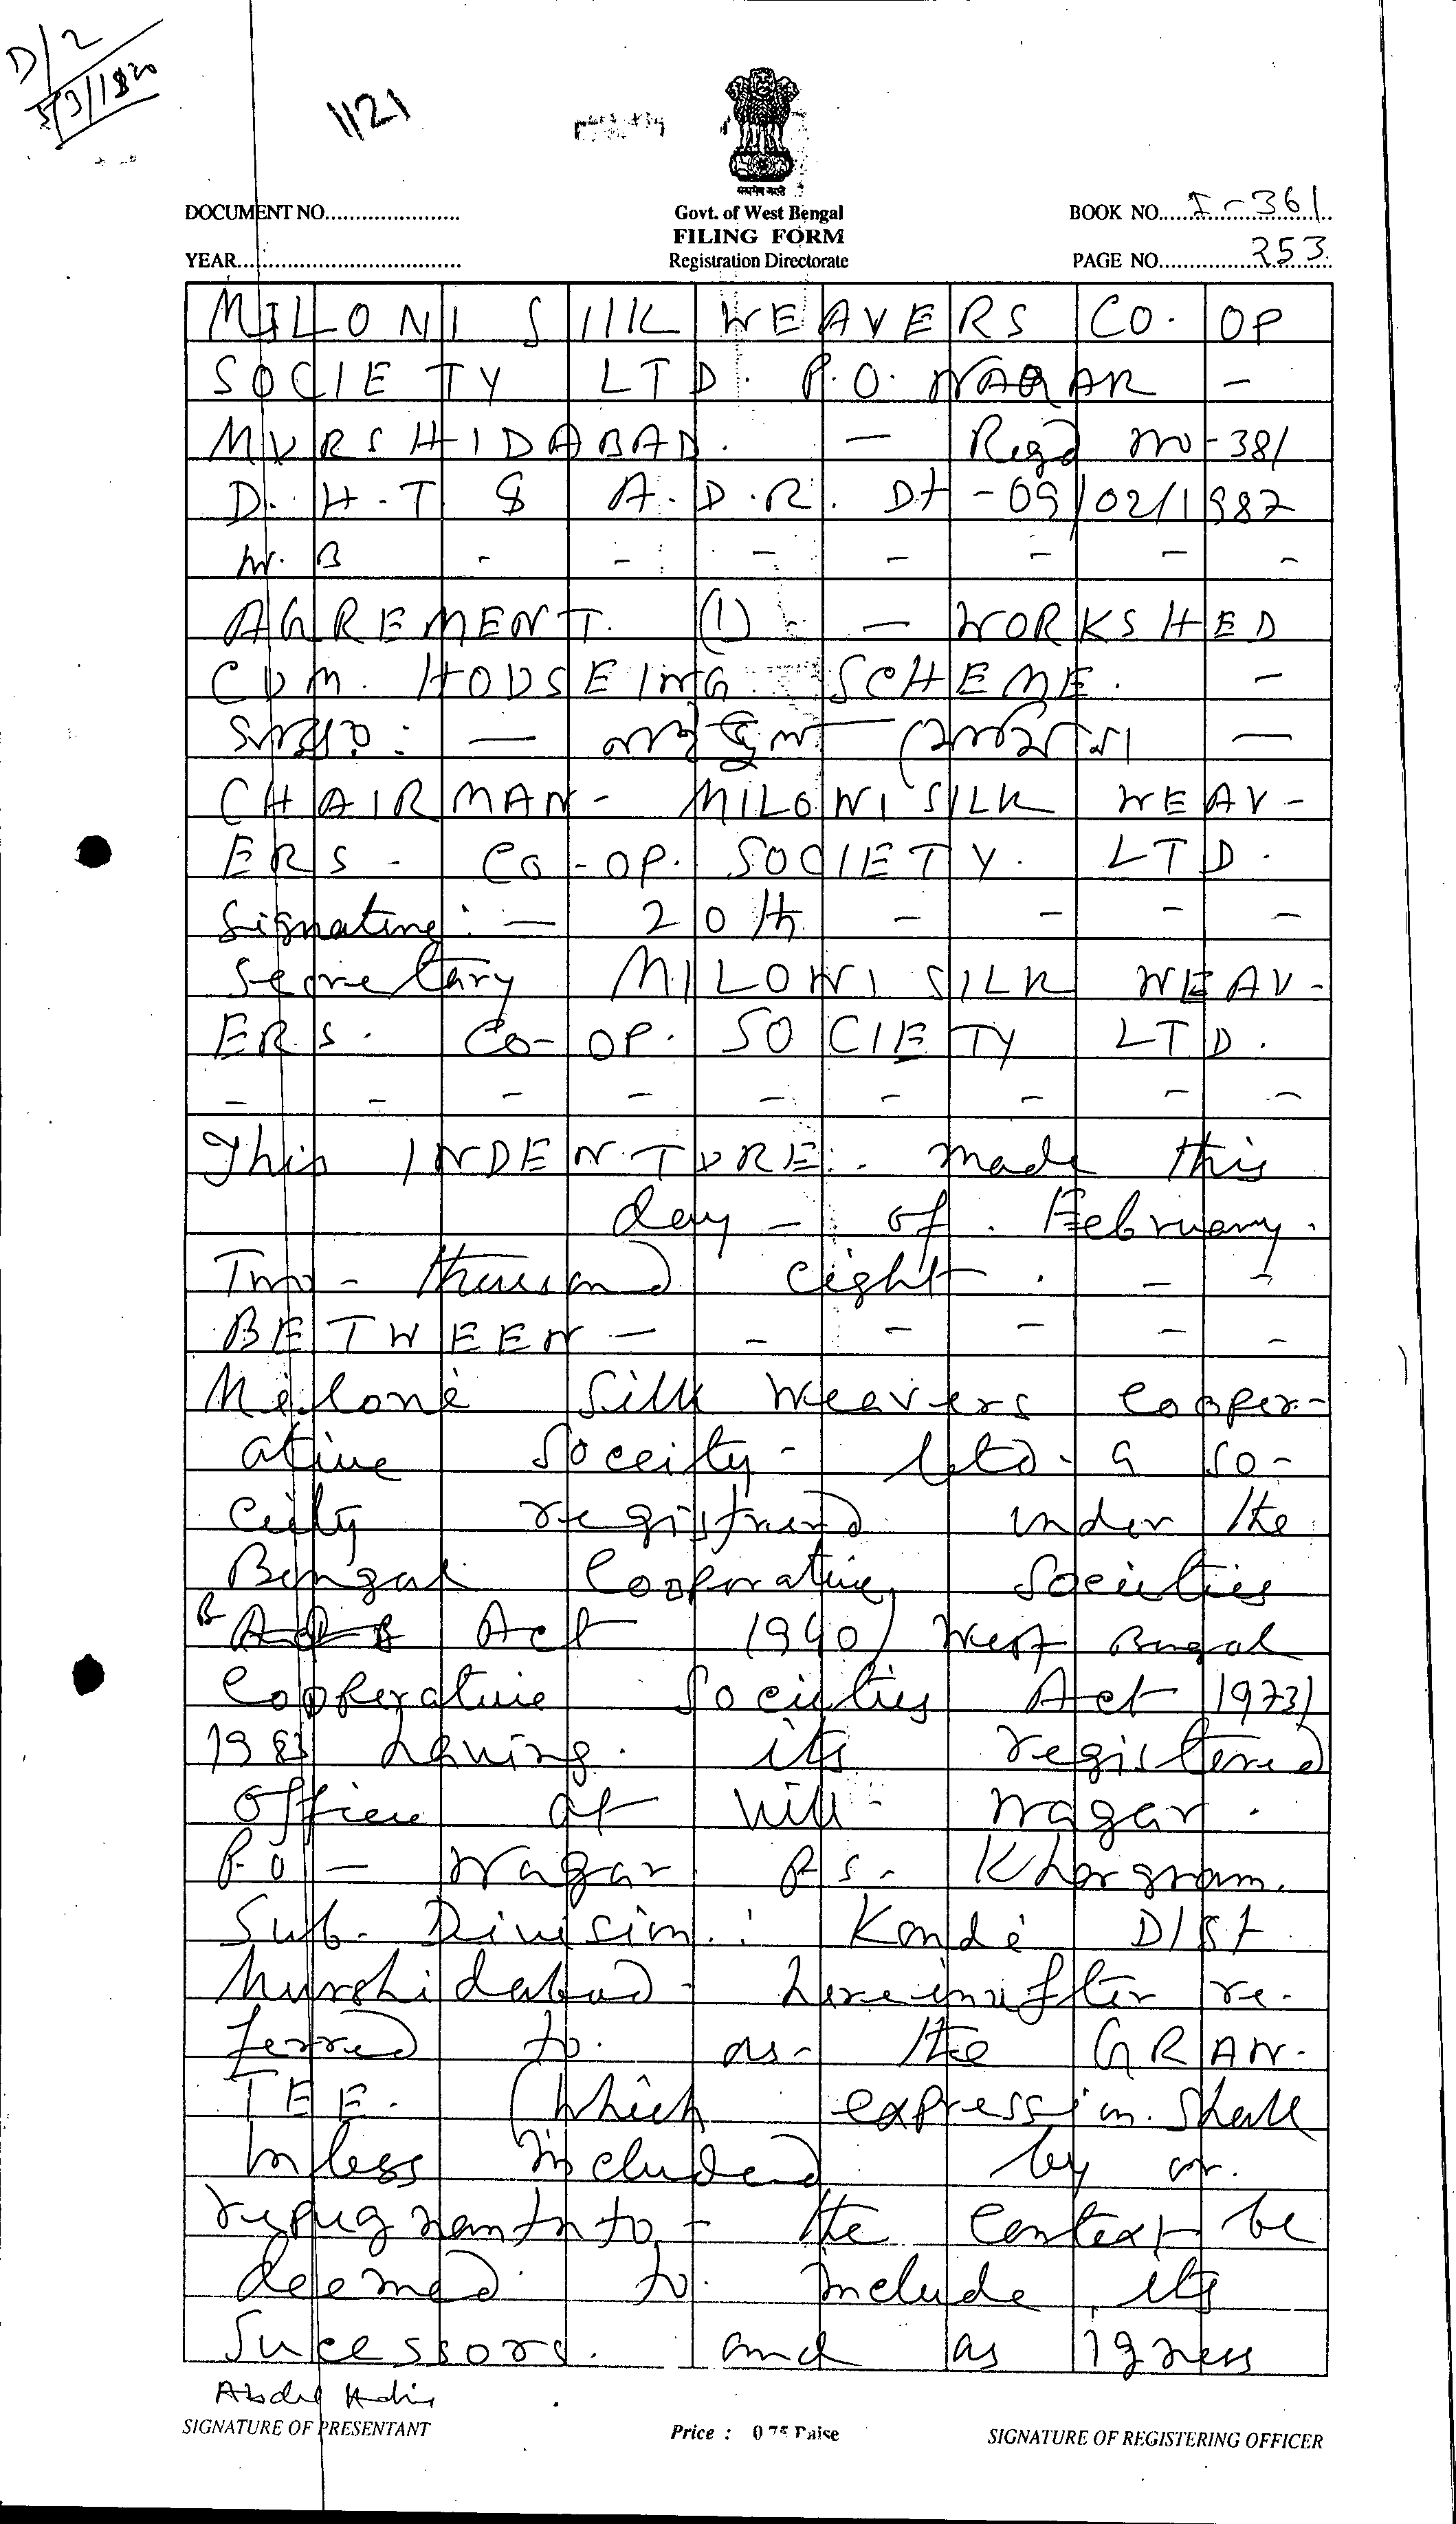 D/2
1121
सत्यमेव जयते
DOCUMENT NO......................
Govt. of West Bengal
BOOK NO. I-361
FILING FORM
YEAR.....................................
Registration Directorate
PAGE NO. 353
MILONI SILK WEAVERS CO. OP
SOCIETY LTD. P.O. NAGAR -
MURSHIDABAD. — Regd no-381
D.H.T & A.D.R. Dt -09/02/1987
W.B - - - - - - -
AGREMENT. (1) - — WORKSHED
CUM. HOUSEING SCHEME. -
—
CHAIRMAN - MILONI SILK WEAV-
ERS - CO-OP. SOCIETY. LTD.
Signature: — - - - -
Secretary MILONI SILK WEAV-
ERS. CO-OP. SOCIETY LTD.
- - - - - - - - -
This INDENTURE. made this
day - of. February.
Two - thousand eight. - -
BETWEEN — - - - - -
Miloni Silk Weavers Cooper-
ative Soceity - Ltd - a So-
ceity registered under the
Bengal Cooperative, Societies
Act 1940/ West Bengal
Cooperative Societies Act 1973/
1983 having. its registered
office at Vill - Nagar.
P.O - Nagar. P.S - Khargram.
Sub-Division: Kandi DIST
Murshidabad - hereinafter re-
ferred to. as - the GRAN-
TEE. (Which expression. Shall
Unless included by or.
repugnant to - the Context be
deemed to. include its
Sucessors. and as igness
Abdul
SIGNATURE OF PRESENTANT
Price : 0.75 Paise
SIGNATURE OF REGISTERING OFFICER